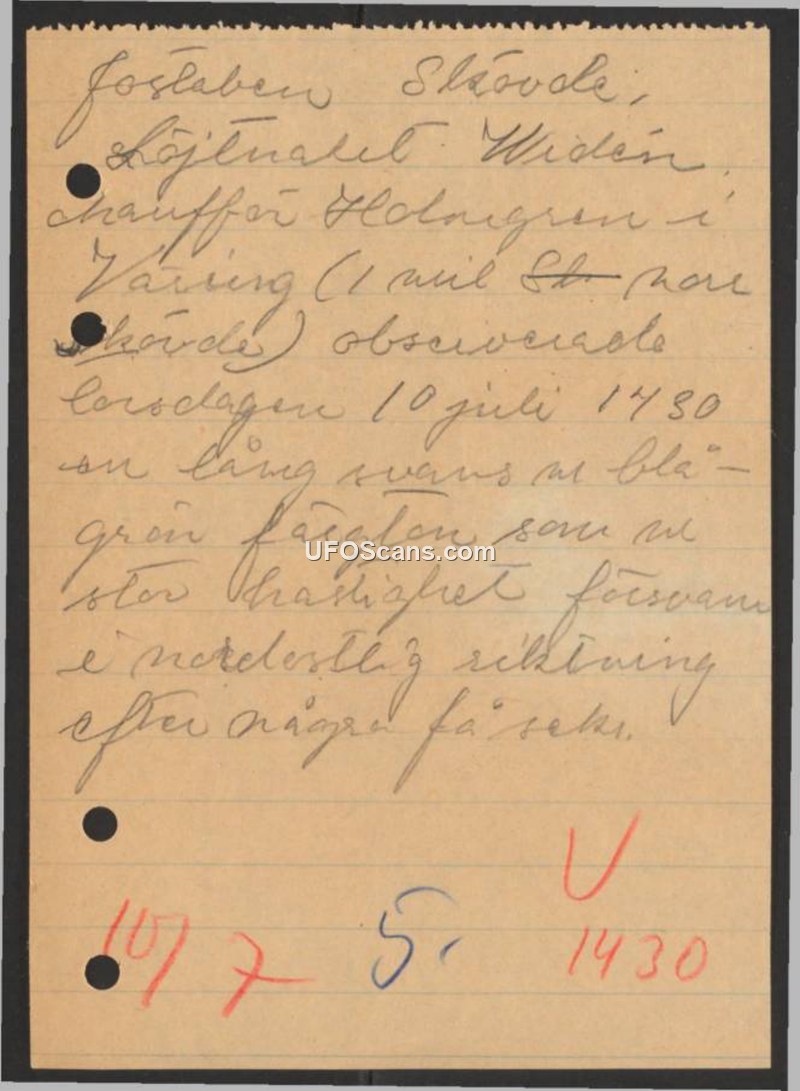 fostaben Skövde,
Löjtnatet Widén,
chaufför Holmgren i
Väring (1 mil Sk norr
Skövde) observerade
torsdagen 10 juli 1430
en lång svans m blå-
grön färgton som m
stor hastighet försvann
i nordostlig riktning
efter några få sek.
UFOScans.com
V
10/7 5. 1430